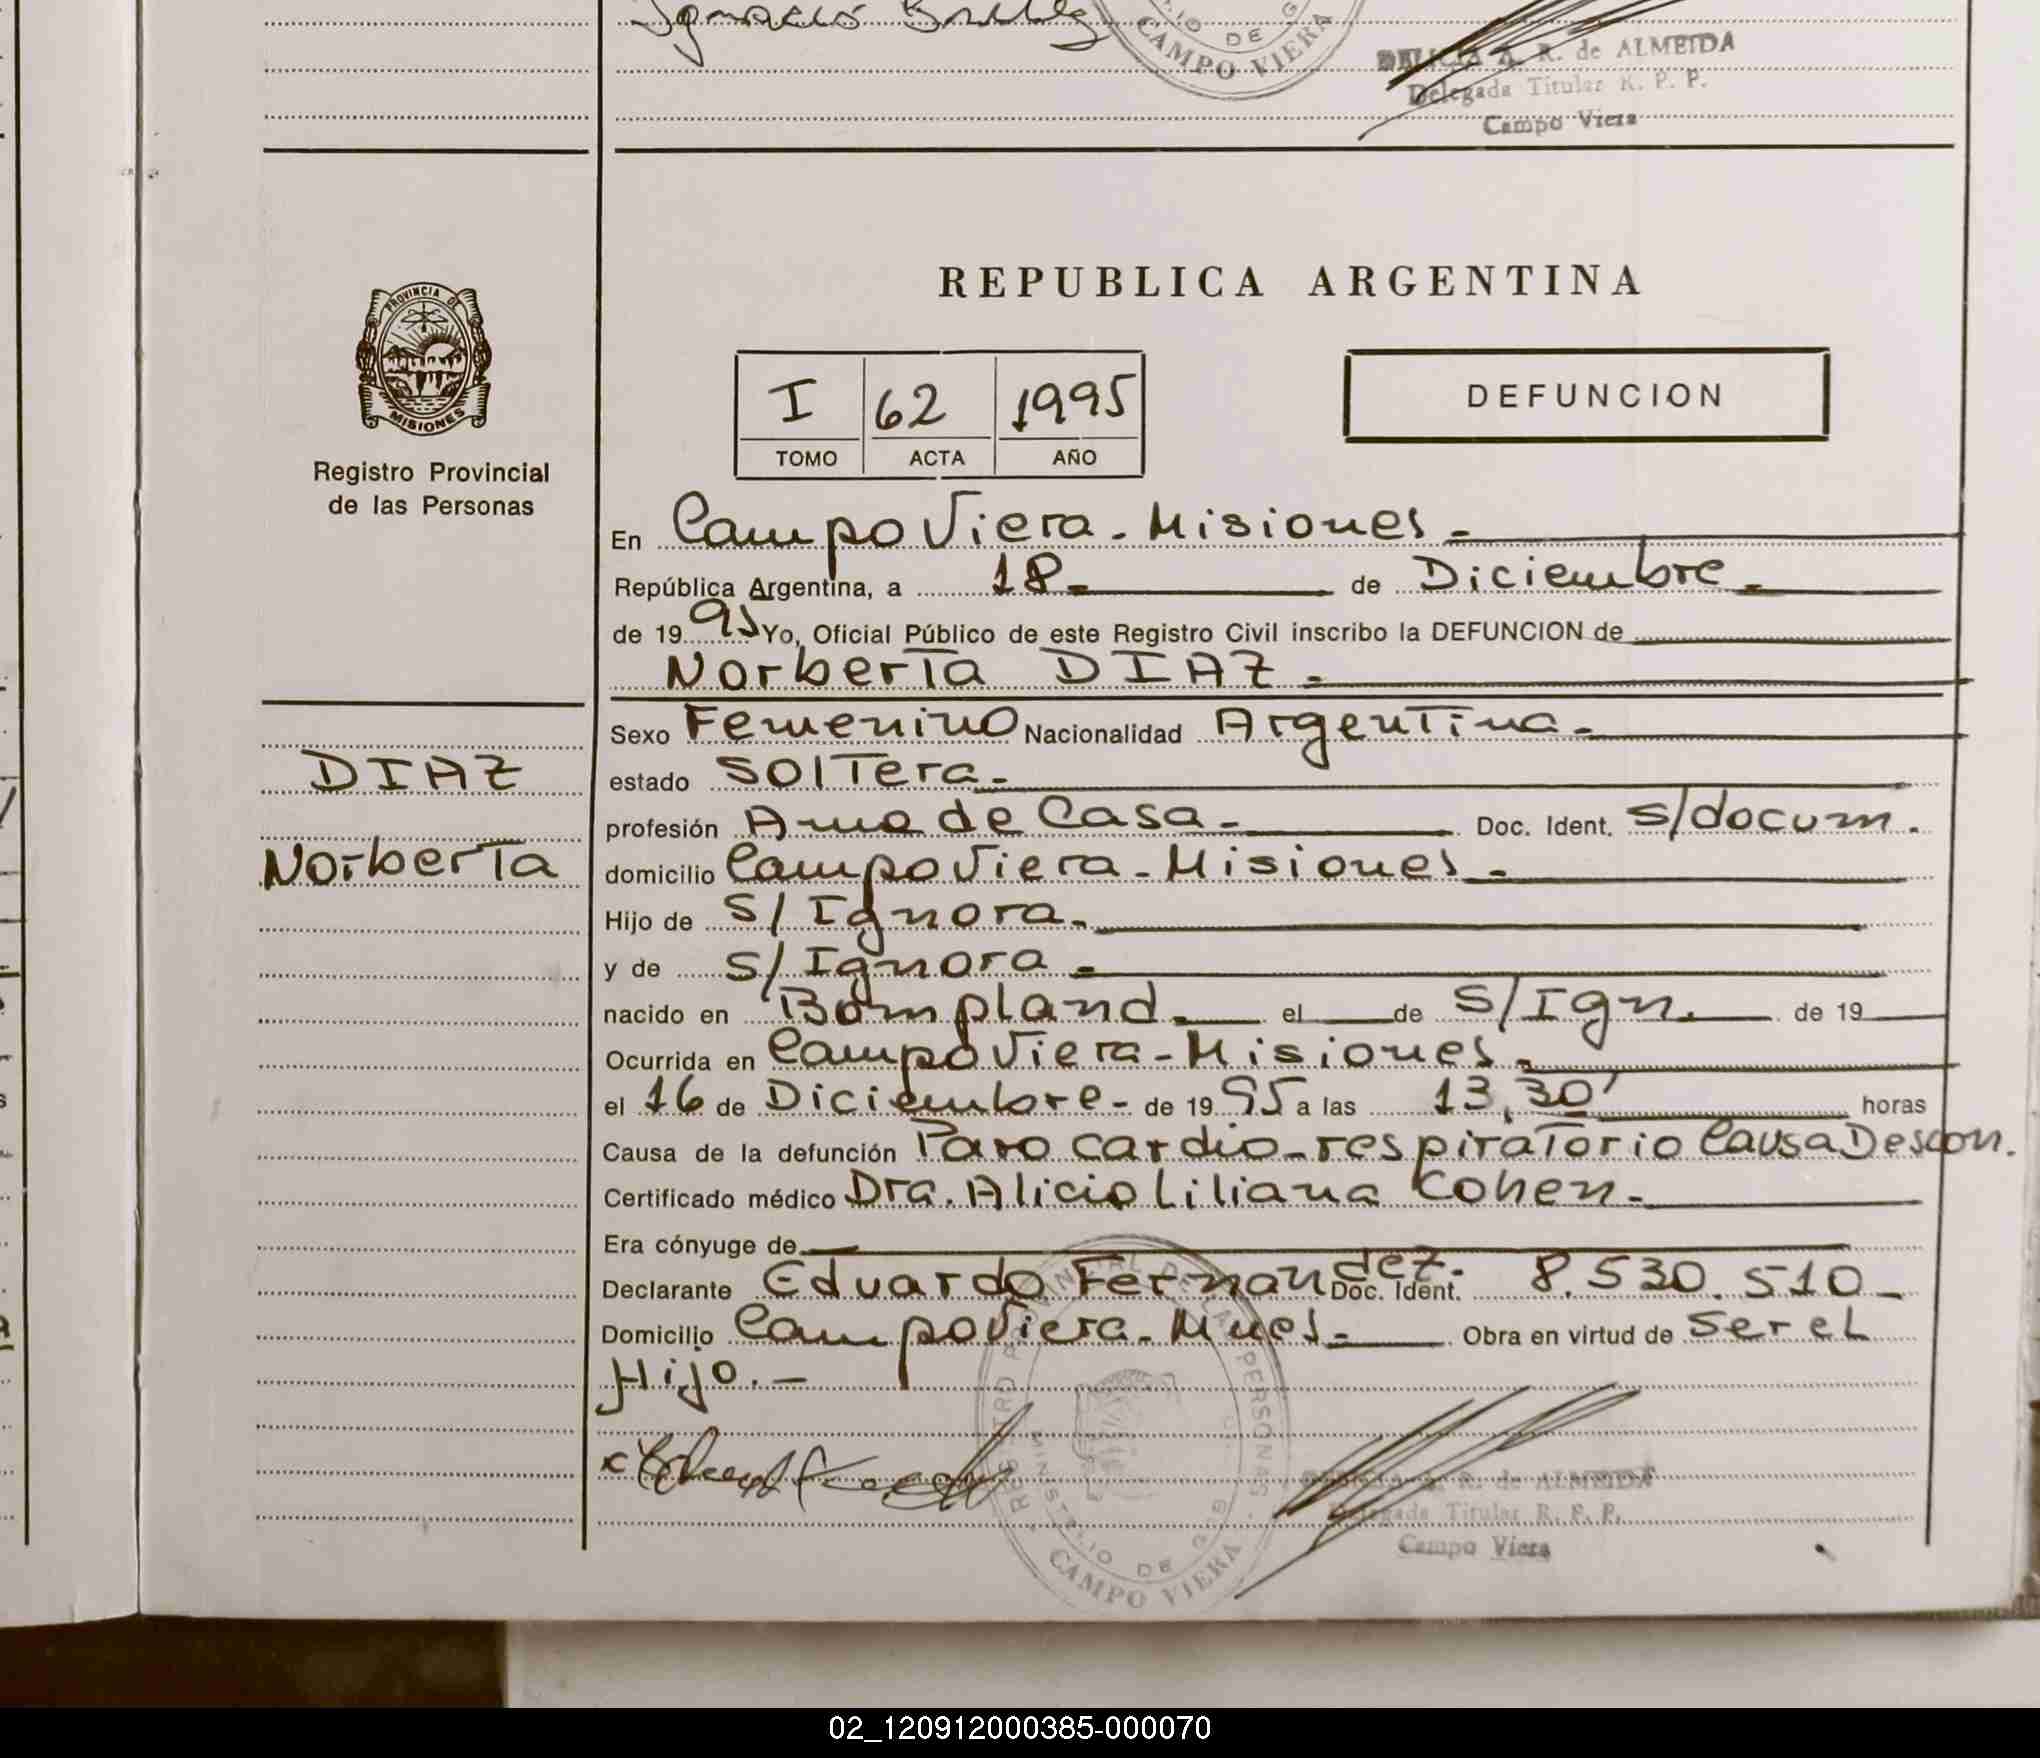 Ignacio
CAMPO VIERA
DELICIA A. R. de ALMEIDA
Delegada Titular R. P. P.
Campo Viera
PROVINCIA DE
MISIONES
Registro Provincial
de las Personas
REPUBLICA ARGENTINA
I 62 1995
TOMO ACTA AÑO
DEFUNCION
En Campo Viera - Misiones -
República Argentina, a 18 - de Diciembre -
de 19 95 Yo, Oficial Público de este Registro Civil inscribo la DEFUNCION de
Norberta DIAZ -
Sexo Femenino Nacionalidad Argentina -
DIAZ
estado Soltera -
profesión Ama de Casa - Doc. Ident. s/docum.
Norberta
domicilio Campo Viera - Misiones -
Hijo de S/ Ignora -
y de S/ Ignora -
nacido en Bompland - el de S/Ign. de 19
Ocurrida en Campo Viera - Misiones -
el 16 de Diciembre - de 19 95 a las 13,30' horas
Causa de la defunción Paro cardio-respiratorio Causa Descon.
Certificado médico Dra. Alicia Liliana Cohen -
Era cónyuge de
Declarante Eduardo Fernandez. Doc. Ident. 8.530.510 -
Domicilio Campo Viera - Mnes - Obra en virtud de Ser el
Hijo. -
REGISTRO PROVINCIAL DE LAS PERSONAS
MINISTERIO DE GOB
CAMPO VIERA
DELICIA A. R. de ALMEIDA
Delegada Titular R. P. P.
Campo Viera
02_120912000385-000070